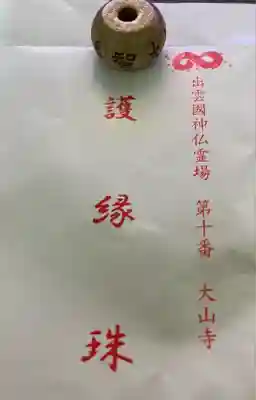 出雲國神仏霊場　第十番　大山寺
護縁珠
智